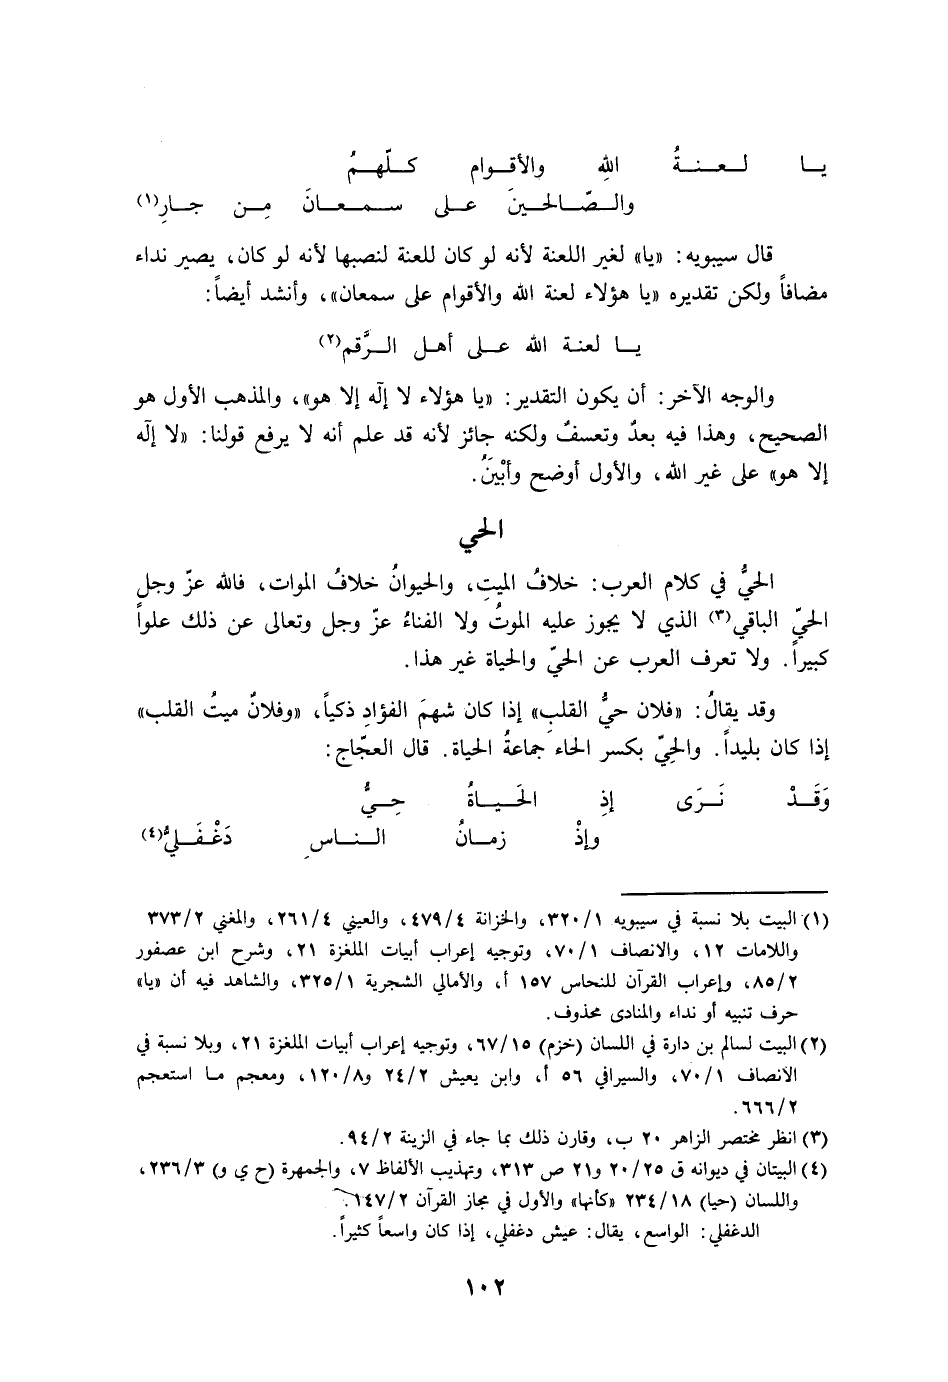 يا لعنةُ الله والأقوام كلّهمُ
والصّالحينَ على سمعانَ مِن جارِ(١)
قال سيبويه: «يا» لغير اللعنة لأنه لو كان للعنة لنصبها لأنه لو كان، يصير نداء
مضافاً ولكن تقديره «يا هؤلاء لعنة الله والأقوام على سمعان»، وأنشد أيضاً:
يا لعنة الله على أهل الرَّقم(٢)
والوجه الآخر: أن يكون التقدير: «يا هؤلاء لا إلّه إلا هو»، والمذهب الأول هو
الصحيح، وهذا فيه بعدٌ وتعسفٌ ولكنه جائز لأنه قد علم أنه لا يرفع قولنا: «لا إلّه
إلا هو» على غير الله، والأول أوضح وأبْيَنُ.
الحي
الحيُّ في كلام العرب: خلافُ الميتِ، والحيوانُ خلافُ الموات، فالله عزّ وجل
الحيّ الباقي(٣) الذي لا يجوز عليه الموتُ ولا الفناءُ عزّ وجل وتعالى عن ذلك علواً
كبيراً. ولا تعرف العرب عن الحيّ والحياة غير هذا.
وقد يقالُ: «فلان حيُّ القلبِ» إذا كان شهمَ الفؤادِ ذكياً، «وفلانٌ ميتُ القلب»
إذا كان بليداً. والحِيّ بكسر الحاء جماعةُ الحياة. قال العجّاج:
وَقَدْ نَرَى إذِ الحَياةُ حِيُّ
وإذْ زمانُ الناسِ دَغْفَليُّ(٤)
(١) البيت بلا نسبة في سيبويه ٣٢٠/١، والخزانة ٤٧٩/٤، والعيني ٢٦١/٤، والمغني ٣٧٣/٢
واللامات ١٢، والانصاف ٧٠/١، وتوجيه إعراب أبيات الملغزة ٢١، وشرح ابن عصفور
٨٥/٢، وإعراب القرآن للنحاس ١٥٧ أ، والأمالي الشجرية ٣٢٥/١، والشاهد فيه أن «يا»
حرف تنبيه أو نداء والمنادى محذوف.
(٢) البيت لسالم بن دارة في اللسان (خزم) ٦٧/١٥، وتوجيه إعراب أبيات الملغزة ٢١، وبلا نسبة في
الانصاف ٧٠/١، والسيرافي ٥٦ أ، وابن يعيش ٢٤/٢ و١٢٠/٨، ومعجم ما استعجم
٦٦٦/٢.
(٣) انظر مختصر الزاهر ٢٠ ب، وقارن ذلك بما جاء في الزينة ٩٤/٢.
(٤) البيتان في ديوانه ق ٢٠/٢٥ و٢١ ص ٣١٣، وتهذيب الألفاظ ٧، والجمهرة (ح ي و) ٢٣٦/٣،
واللسان (حيا) ٢٣٤/١٨ «كأنها» والأول في مجاز القرآن ١٤٧/٢.
الدغفلي: الواسع، يقال: عيش دغفلي، إذا كان واسعاً كثيراً.
١٠٢